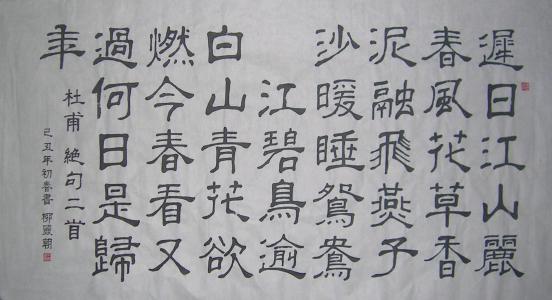 遲日江山麗
春風花草香
泥融飛燕子
沙暖睡鴛鴦
江碧鳥逾
白山青花欲
燃今春看又
過何日是歸
年
杜甫 絕句二首
己丑年初春書 柳